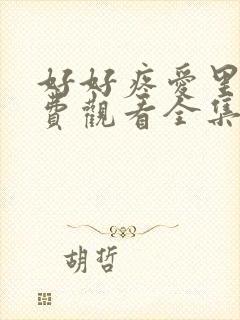 好好疼愛里
費觀看全集
胡哲